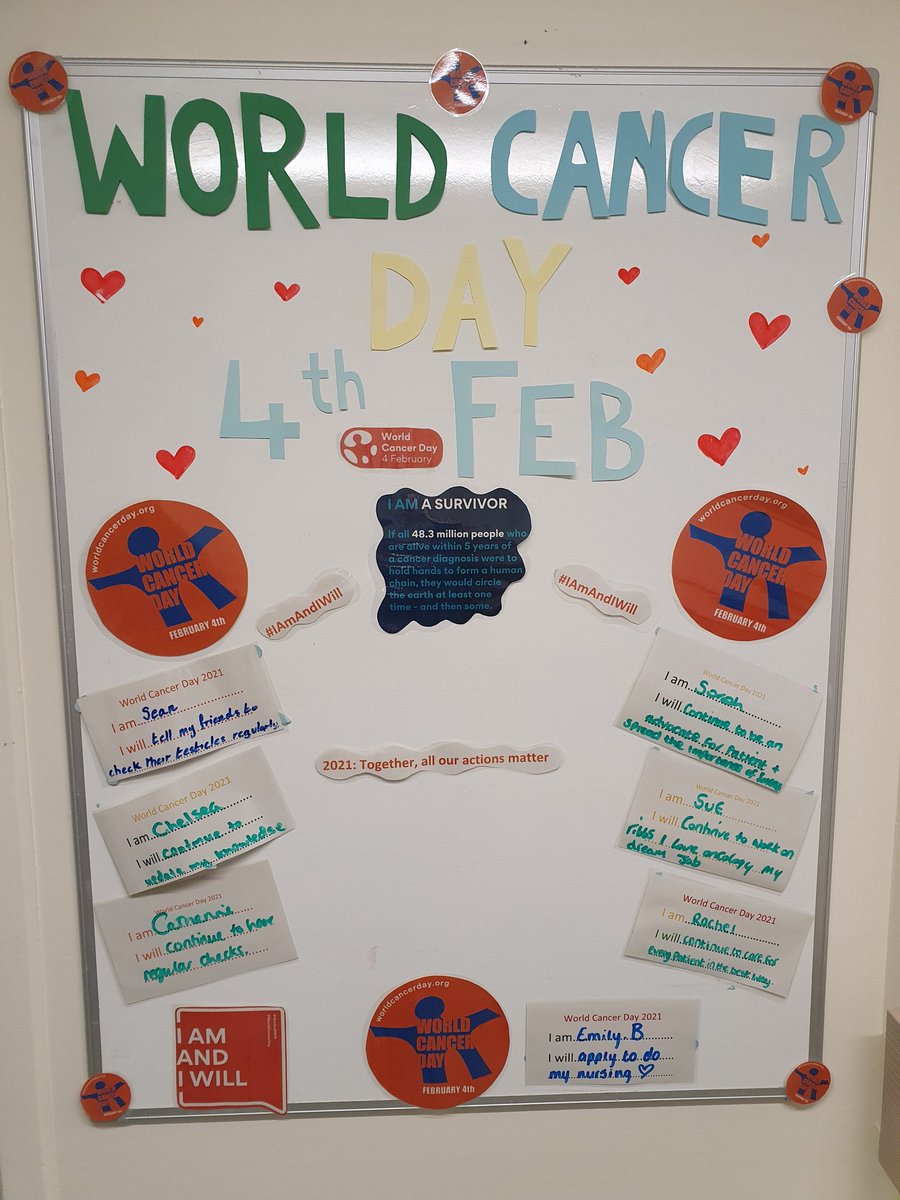 WORLD CANCER
DAY
4th FEB
World
Cancer Day
4 February
worldcancerday.org
WORLD
CANCER
DAY
FEBRUARY 4th
I AM A SURVIVOR
If all 48.3 million people who
are alive within 5 years of
a cancer diagnosis were to
hold hands to form a human
chain, they would circle
the earth at least one
time - and then some.
worldcancerday.org
WORLD
CANCER
DAY
FEBRUARY 4th
#IAmAndIWill
#IAmAndIWill
World Cancer Day 2021
I am Sean
I will tell my friends to
check their testicles regularly
World Cancer Day 2021
I am Sarah
I will Continue to be an
advocate for Patient +
spread the importance of
2021: Together, all our actions matter
World Cancer Day 2021
I am Chelsea
I will continue to
update my knowledge
World Cancer Day 2021
I am SUE
I will Continue to work on
I love oncology my
dream Job
World Cancer Day 2021
I am
I will continue to have
regular checks.
World Cancer Day 2021
I am Rachel
I will continue to care for
every Patient in the best way.
I AM
AND
I WILL
worldcancerday.org
WORLD
CANCER
DAY
FEBRUARY 4th
World Cancer Day 2021
I am Emily. B
I will apply to do
my nursing ♡